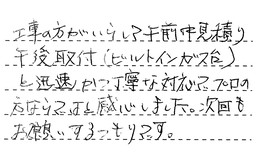 工事の方がいらして午前中見積り
午後取付(ビルトインガス台)
と迅速かつ丁寧な対応でプロの
方ならではと感心しました。次回も
お願いするつもりです。